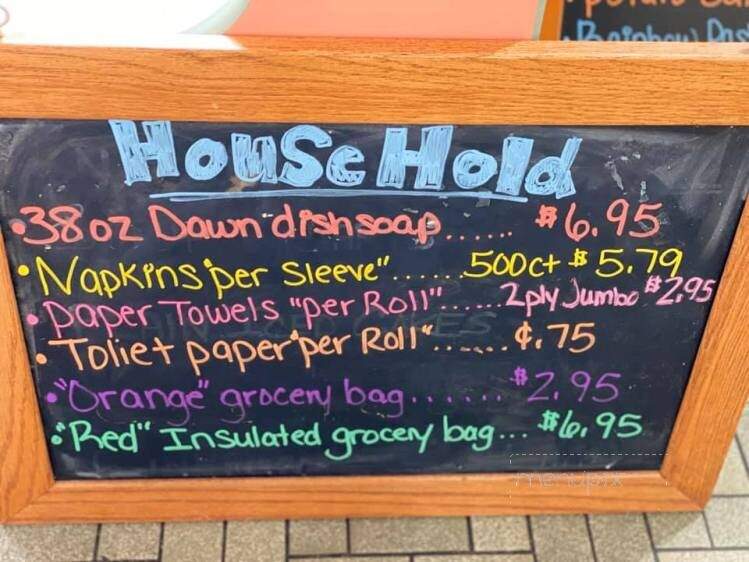 HouSe Hold
•38oz Dawn dishsoap...... $6.95
•Napkins "per sleeve"......500ct $5.79
•paper Towels "per Roll"......2ply Jumbo $2.95
•Toliet paper "per Roll"...... ¢.75
•"Orange" grocery bag...... $2.95
•"Red" Insulated grocery bag... $6.95
menupix